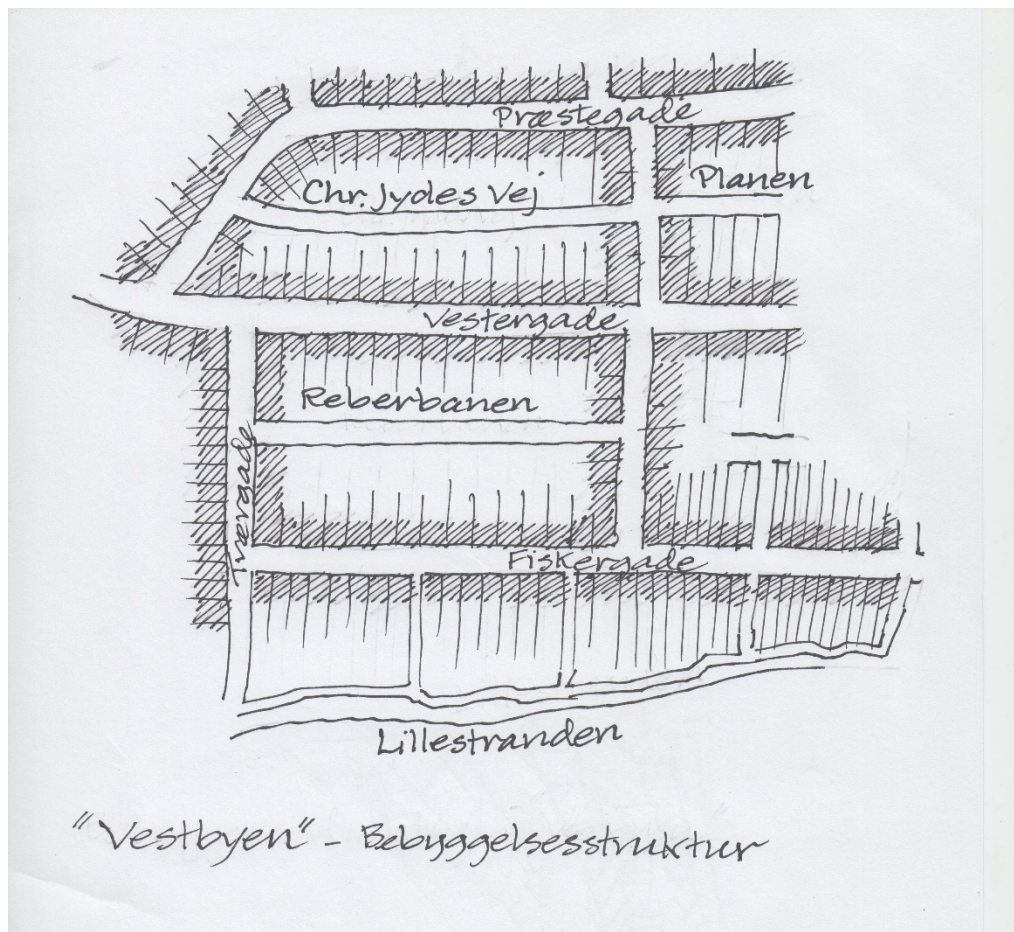 Præstegade
Planen
Chr. Jydes Vej
Vestergade
Reberbanen
Tværgade
Fiskergade
Lillestranden
"Vestbyen" - Bebyggelsesstruktur